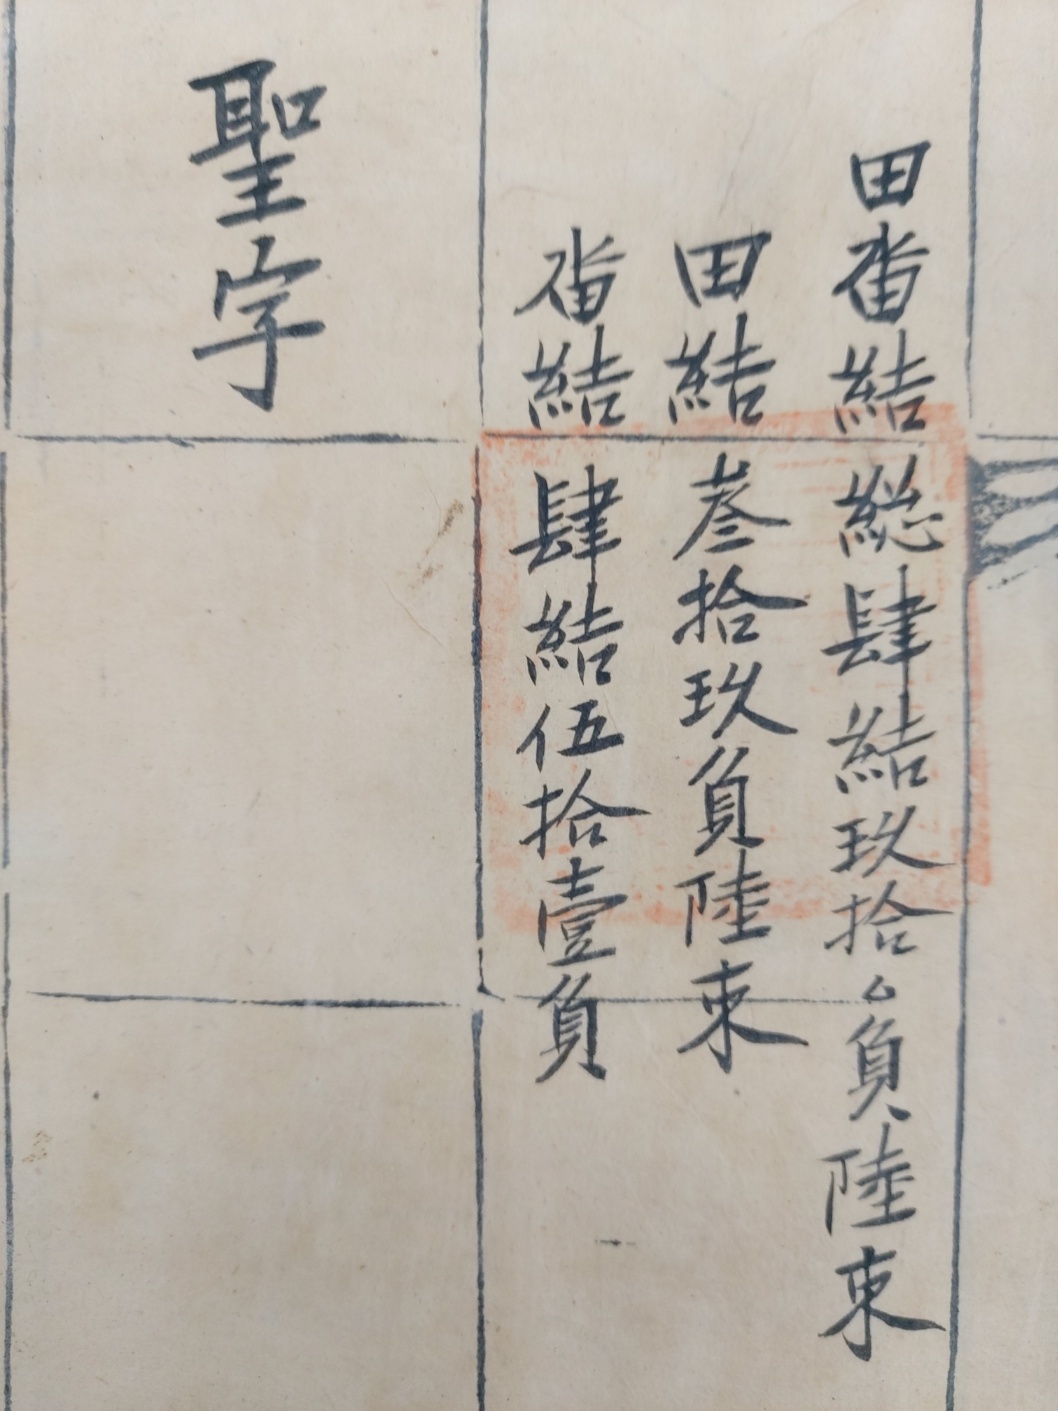 田畓結総肆結玖拾厶負陸束
田結叁拾玖負陸束
畓結肆結伍拾壹負
聖字